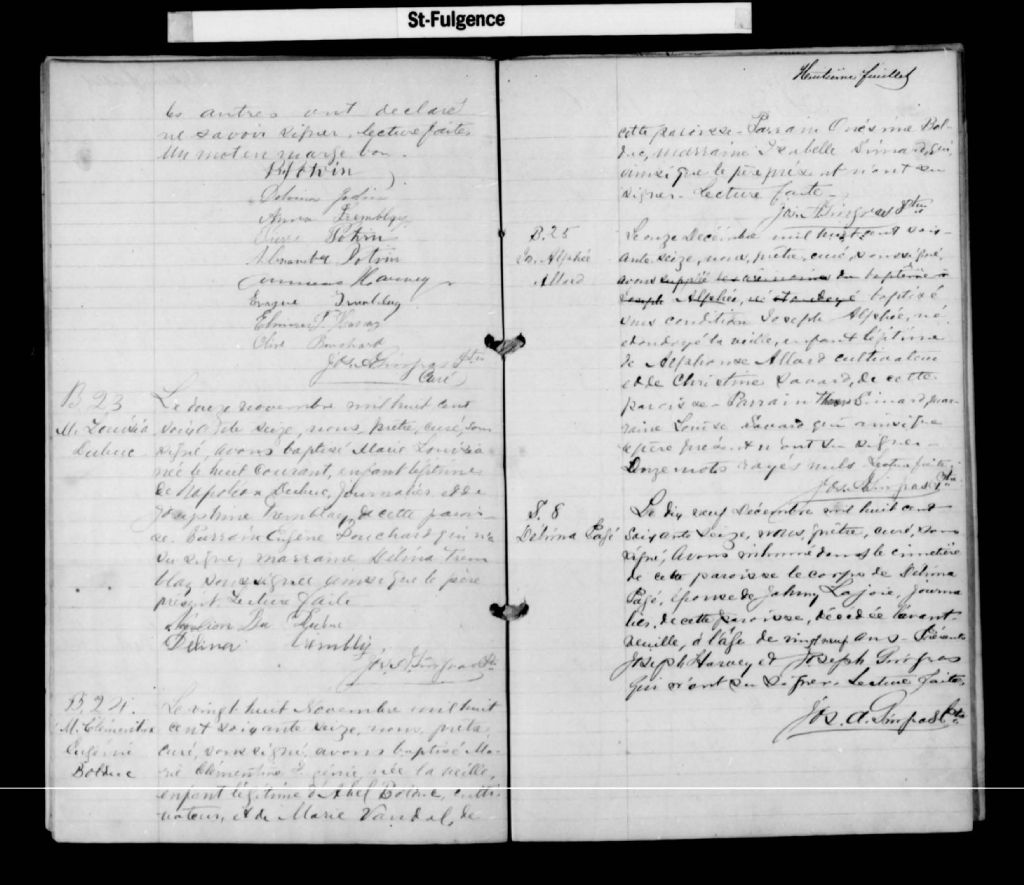 St-Fulgence
les autres ont declaré
ne savoir signer, lecture faite.
Un mot en marge bon.
Potvin
Delvina
Anna Tremblay
Potvin
Potvin
Harvey
Eugène Tremblay
Harvey
Olive Bouchard
Jos. A. Gingras Ptre
Curé
B 23
M. Louisia
Dubuc
Le douze novembre mil huit cent
soixante seize, nous, prêtre, curé, sous
signé, avons baptisé Marie Louisia
née le huit courant, enfant légitime
de Napoléon Dubuc, journalier et de
Joséphine Tremblay de cette parois-
se. Parrain Eugène Bouchard qui n'a
su signer, marraine Délina Trem
blay soussignée ainsi que le père
présent. Lecture faite
Du
Delina Tremblay
Jos. A. Gingras Ptre
B. 24.
M. Clémentine
Eugénie
Bolduc
Le vingt huit Novembre mil huit
cent soixante seize, nous, prêtre,
curé, soussigné, avons baptisé Ma-
rie Clémentine Eugénie, née la veille,
enfant légitime d'Abel Bolduc, culti-
vateur, et de Marie Vandal, de
Huitième feuillet
cette paroisse. Parrain Onésime Bol-
duc, marraine Isabelle Simard, qui,
ainsi que le père présent n'ont su
signer. Lecture faite.
Jos. A. Gingras Ptre
B. 25
Js. Alphée
Allard
Le onze Décembre mil huit cent soix-
ante seize, nous, prêtre, curé, soussigné,
avons suppléé les cérémonies du baptême à
Joseph Alphée, né et ondoyé baptisé
sous condition Joseph Alphée, né
et ondoyé la veille, enfant légitime
de Alphonse Allard cultivateur
et de Christine Savard, de cette
paroisse. Parrain Simard, mar-
raine Louise Savard qui ainsi que
le père présent n'ont su signer.
Onze mots rayés nuls. Lecture faite.
Jos. A. Gingras Ptre
S. 8
Délima Pagé
Le dix neuf Décembre mil huit cent
soixante seize, nous, prêtre, curé, sous
signé, avons inhumé dans le cimetière
de cette paroisse le corps de Délima
Pagé, épouse de Johnny Lajoie, journa
lier, de cette paroisse, décédée l'avant-
veille, à l'âge de vingt neuf ans. Présents
Joseph Harvey et Joseph Gingras
qui n'ont su signer. Lecture faite.
Jos. A. Gingras Ptre